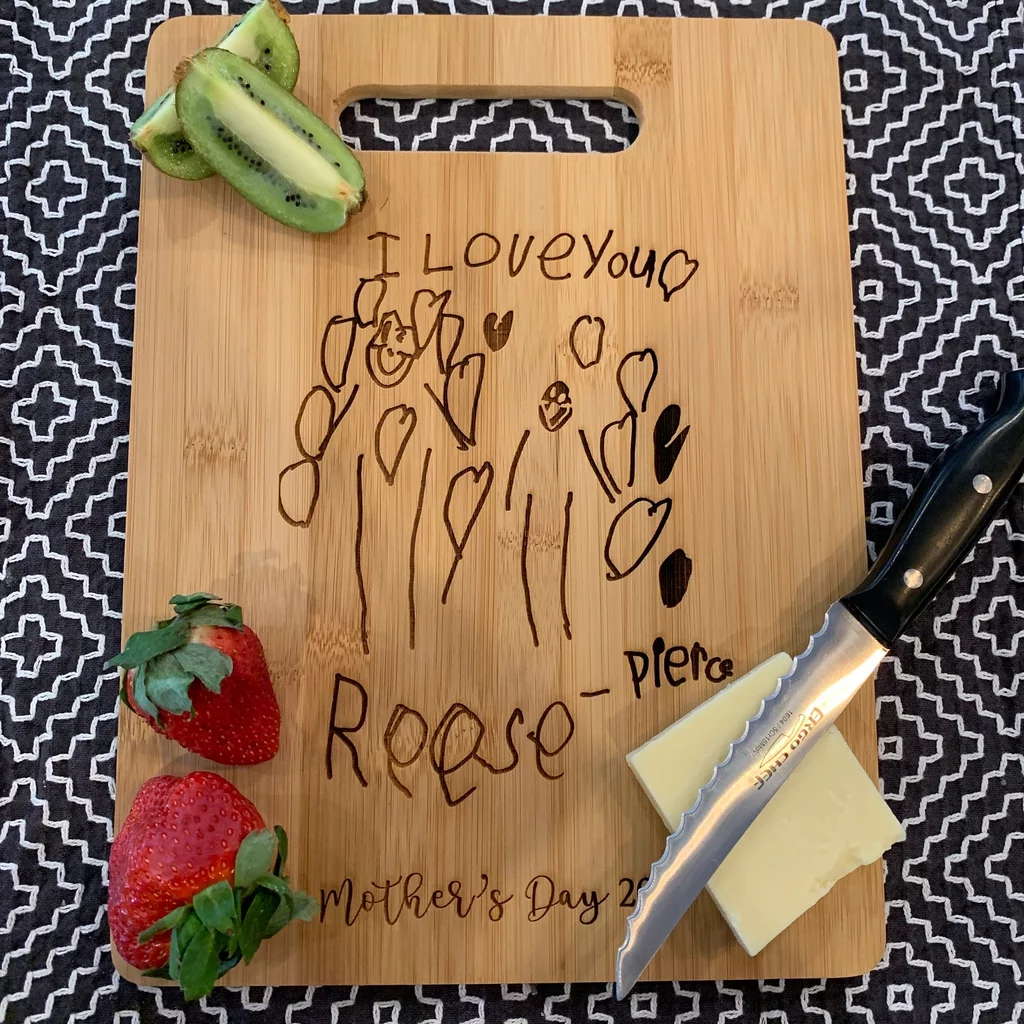 I Love You
Reese - Pierce
Mother's Day 2
ERGO CHEF